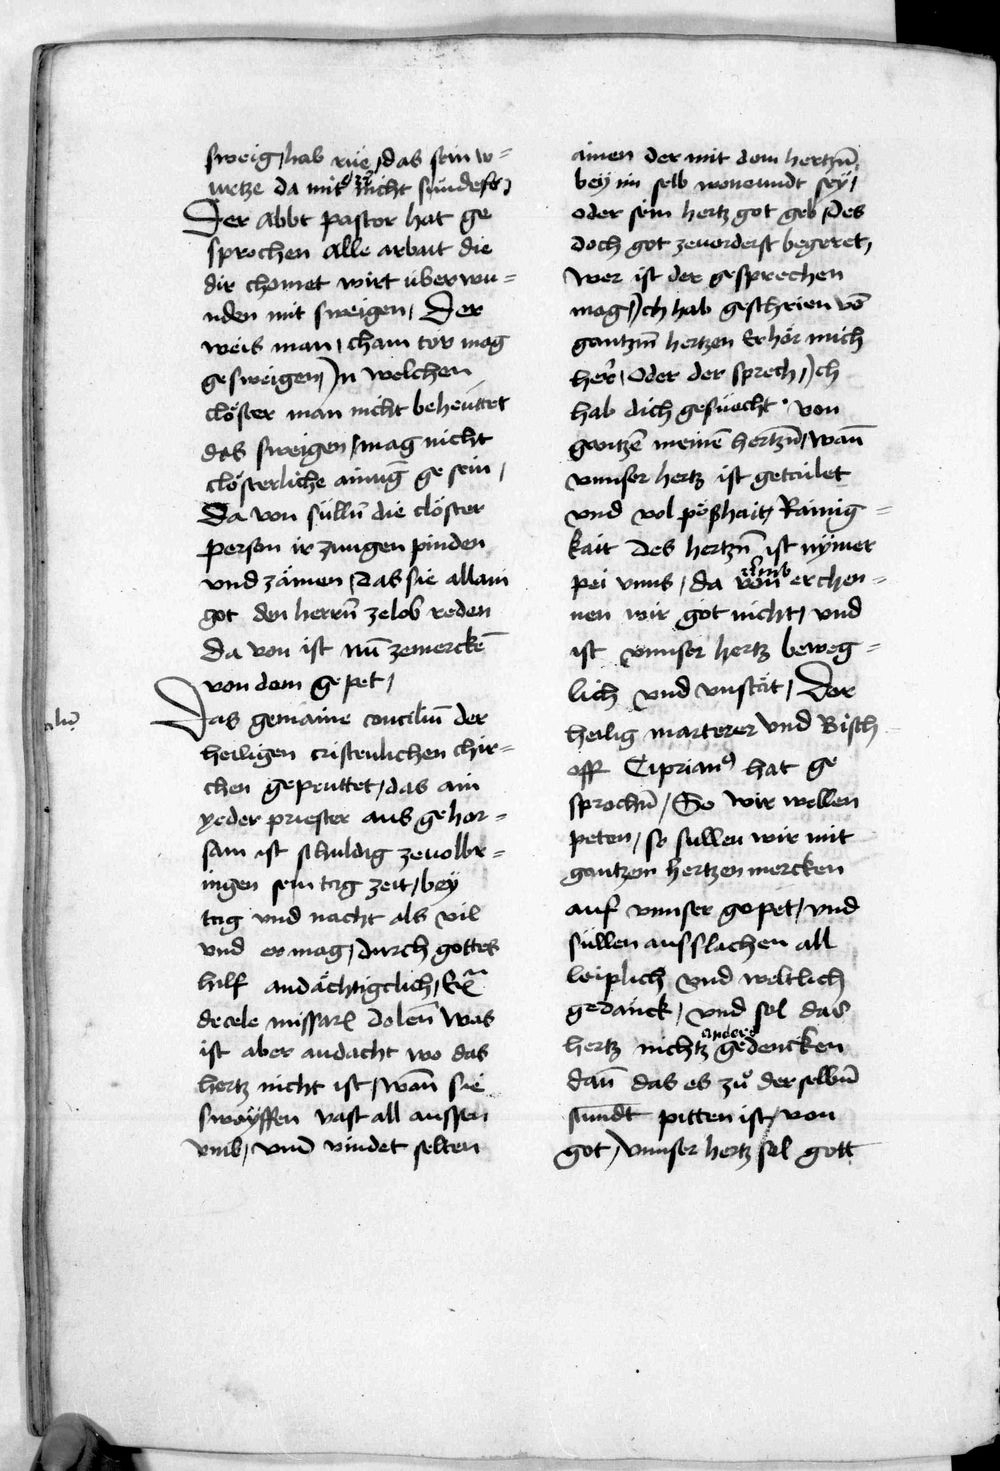 sweig, hab rúe, das sein w=
uetze da mit du nicht súndest,
Der Abbt pastor hat ge
sprochen Alle arbait die
dir chomet wirt úberwu=
nden mit sweigen, Der
weis man, chain tor mag
gesweigen, In welchen
clöster man nicht beheuttet
das sweigen, mag nicht
clösterliche ainug̅ ge sein,
Da von súlln̅ die clöster
person ir zungen pinden
vnd zämen, Das sie allain
got den herrn̅ zelob reden
Da von ist nu̅ zemercke̅
von dem gepet,
Das gemaine conciliu̅ der
heiligen cristenlichen chir=
chen gepeuttet, das ain
yeder priester aus gehor=
sam ist schuldig zeuolbr=
ingen sein tag zeit, bey
tag vnd nacht als vil
vnd er mag, durch gottes
hilf andächtigclich, Ex̅
de cele missar̅ Dolen̅ Was
ist aber andacht wo das
hertz nicht ist, wan̅ sie
swayffen vast all aussen
vmb, vnd vindet selten
ainen der mit dem hertzn̅
bey im selb wonundt sey,
oder sein hertz got geb, Des
doch got zeuorderst begeret,
Wer ist der gesprechen
mag, Ich hab geschrien vo̅
gantzm̅ hertzen Erhör mich
herr, Oder der sprech, Ich
hab dich gesuecht von
gantze̅ meine̅ hertzn̅, wan̅
vnnser hertz ist getailet
vnd vol pößhait, Rainig=
kait des hertzn̅ ist nymer
pei vnns, da vmb erchen=
nen wir got nicht, vnd
ist vnnser hertz beweg=
lich vnd vnstät, Der
heilig marterer vnd Bisch
off Ciprian9 hat ge
sprochn̅, So wir wellen
peten, so sullen wir mit
gantzem hertzen mercken
auf vnnser gepet, vnd
súllen ausslachen all
leiplich vnd weltlich
gedänck, vnd sol das
hertz nichtz anders gedencken
dan̅ das es zů derselbn̅
stundt pitten ist, von
got, Vnnser hertz sol gott